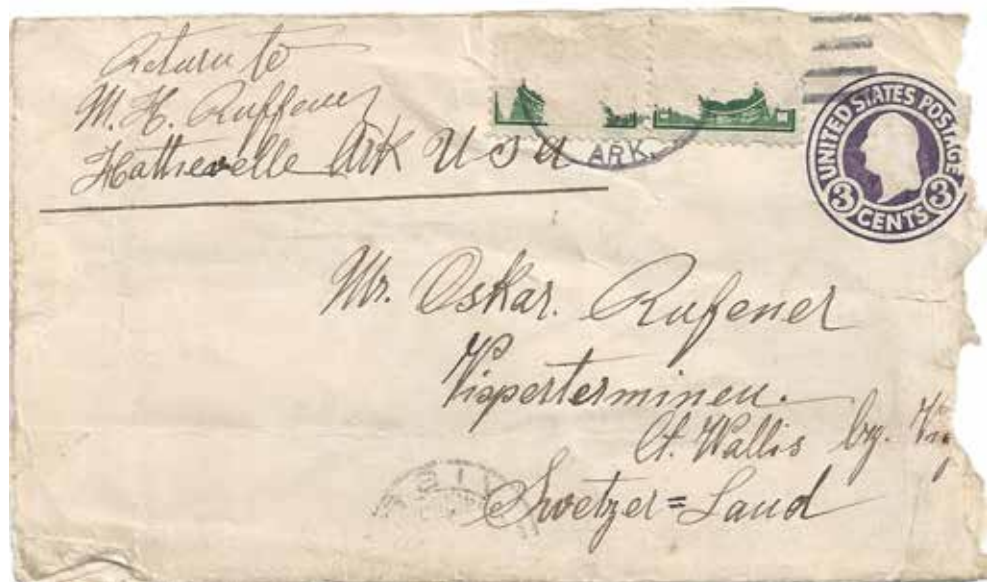 Return to
M. H. Ruffener
Hattievelle Ark U S A
ARK.
UNITED STATES POSTAGE
3 CENTS 3
Mr. Oskar. Rufener
Visperterminen.
Ct. Wallis by.
Swetzer=Land